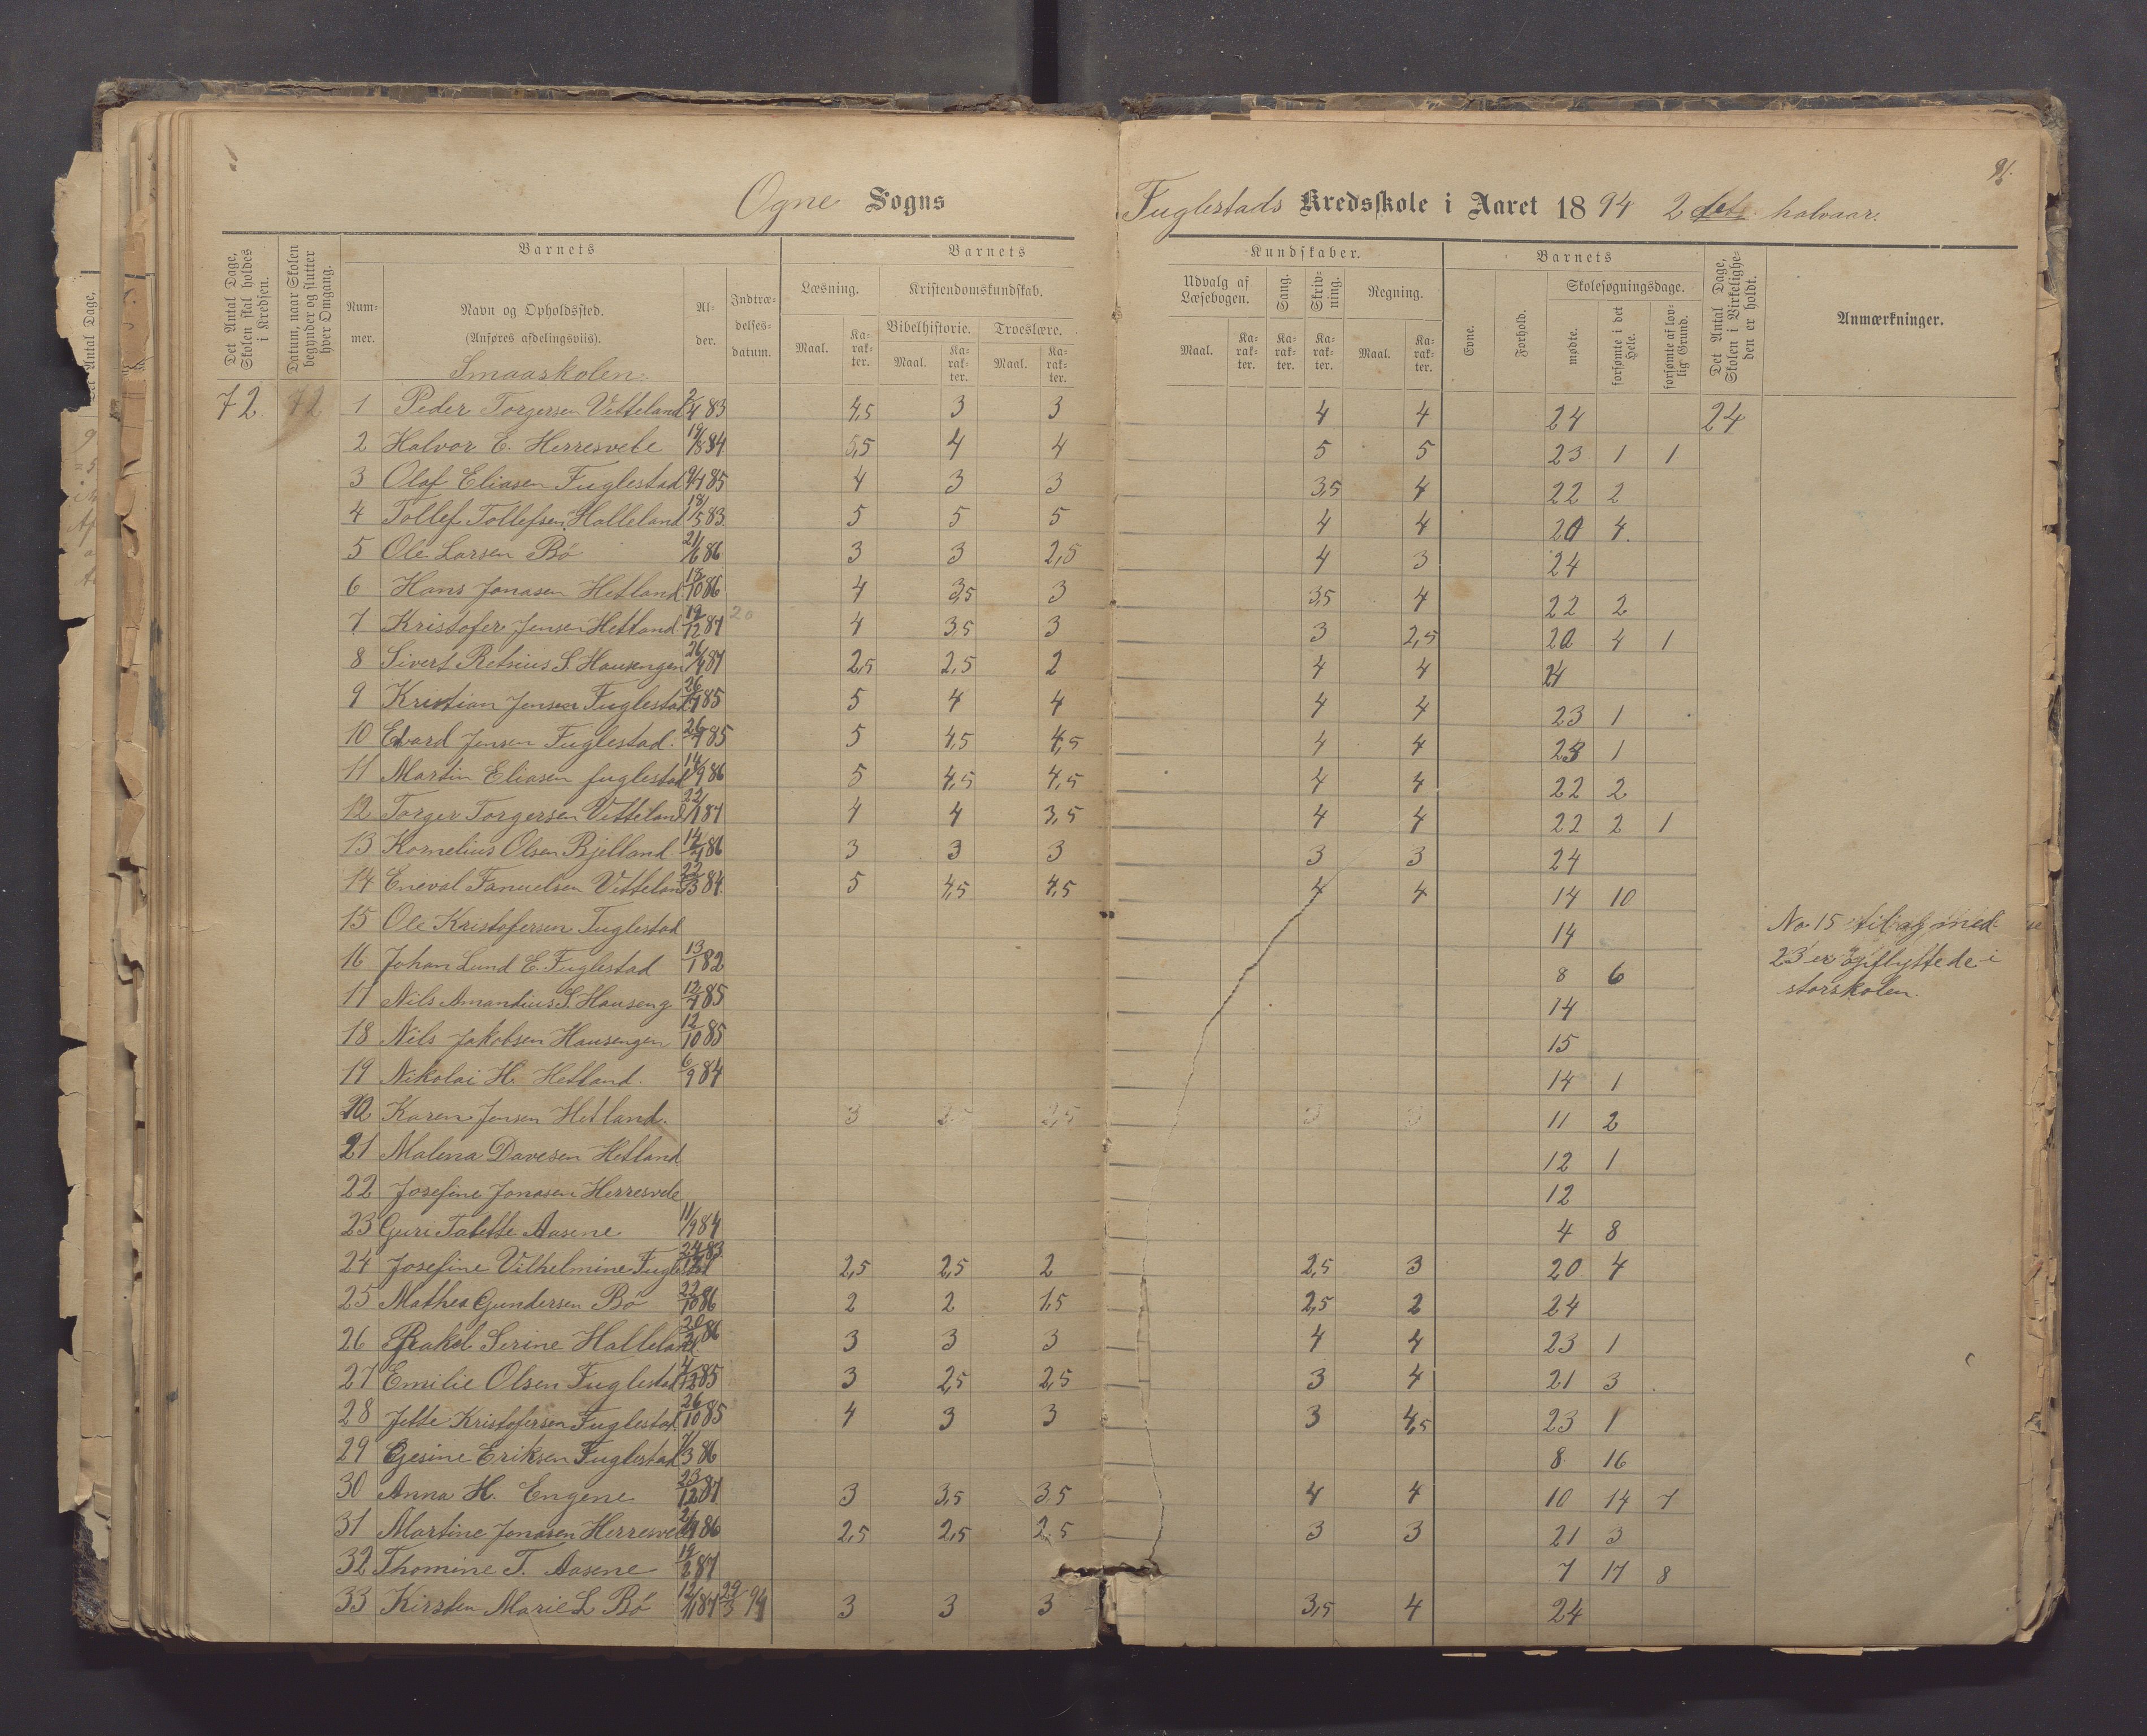 91.
Ogne Sogns Fuglestads Kredsskole i Aaret 1894 2 det halvaar.
Det Antal Dage, Skolen skal holdes i Kredsen.
Datum, naar Skolen begynder og slutter hver Omgang.
Barnets Barnets Kundskaber. Barnets
Nummer. Navn og Opholdssted. (Anføres afdelingsviis). Alder. Indtrædelsesdatum.
Læsning. Kristendomskundskab. Udvalg af Læsebogen. Sang. Skrivning. Regning. Evne. Forhold. Skolesøgningsdage.
Bibelhistorie. Troeslære.
Maal. Karakter. Maal. Karakter. Maal. Karakter. Maal. Karakter. Karakter. Karakter. Maal. Karakter. mødte. forsømte i det Hele. forsømte af lovlig Grund.
Det Antal Dage, Skolen i Virkeligheden er holdt.
Anmærkninger.
Smaaskolen.
72 72 1 Peder Torgersen Vetteland 2/4 83 4,5 3 3 4 4 24 24
2 Halvor E. Herresvele 19/8 84 5,5 4 4 5 5 23 1 1
3 Olaf Eliasen Fuglestad 9/4 85 4 3 3 3,5 4 22 2
4 Tollef Tollefsen Halleland 18/5 83 5 5 5 4 4 20 4
5 Ole Larsen Bö 21/6 86 3 3 2,5 4 3 24
6 Hans Jonasen Hetland 18/10 86 4 3,5 3 3,5 4 22 2
7 Kristofer Jensen Hetland 19/12 87 20 4 3,5 3 3 2,5 20 4 1
8 Sivert Retsius S. Hausengen 26/4 87 2,5 2,5 2 4 4 24
9 Kristian Jensen Fuglestad 26/7 85 5 4 4 4 4 23 1
10 Edvard Jensen Fuglestad. 26/7 85 5 4,5 4,5 4 4 23 1
11 Martin Eliasen fuglestad 14/9 86 5 4,5 4,5 4 4 22 2
12 Torger Torgersen Vetteland 22/1 87 4 4 3,5 4 4 22 2 1
13 Kornelius Olsen Bjelland 14/7 86 3 3 3 3 3 24
14 Eneval Fanuelsen Vetteland 22/3 84 5 4,5 4,5 4 4 14 10
15 Ole Kristofersen Fuglestad 14 No 15 til og med
16 Johan Lund E. Fuglestad 13/1 82 8 6 23 er opflyttede i
17 Nils Amandius S. Hauseng 12/4 85 14 storskolen.
18 Nils Jakobsen Hausengen 12/10 85 15
19 Nikolai H. Hetland. 6/9 84 14 1
20 Karen Jensen Hetland. 3 2,5 2,5 3 3 11 2
21 Malena Davesen Hetland 12 1
22 Josefine Jonasen Herresvele 12
23 Guri Tabette Aasene 11/9 84 4 8
24 Josefine Vilhelmine Fuglestad 83 2,5 2,5 2 2,5 3 20 4
25 Mathea Gundersen Bö 22/10 86 2 2 1,5 2,5 2 24
26 Rakel Serine Halleland 86 3 3 3 4 4 23 1
27 Emilie Olsen Fuglestad 4/12 85 3 2,5 2,5 3 4 21 3
28 Jette Kristofersen Fuglestad 26/10 85 4 3 3 3 4,5 23 1
29 Gjesine Eriksen Fuglestad 7/3 86 8 16
30 Anna H. Engene 23/12 87 3 3,5 3,5 4 4 10 14 7
31 Martine Jonasen Herresvele 86 2,5 2,5 2,5 3 3 21 3
32 Thomine T. Aasene 19/2 87 7 17 8
33 Kirsten Marie L Bö 12/11 87 29/3 94 3 3 3 3,5 4 24